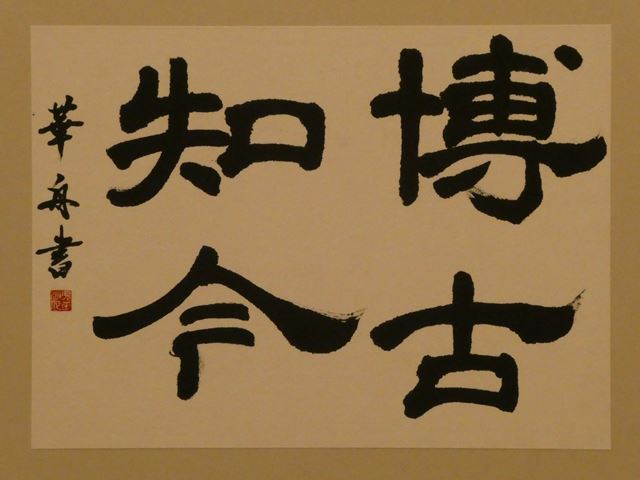 博古
知今
華舟書